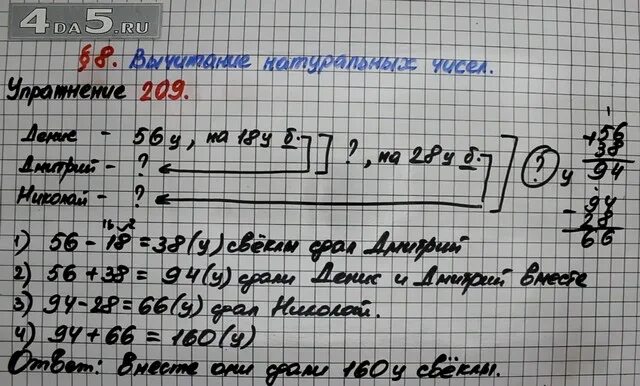 4DA5.RU
§8. Вычитание натуральных чисел.
Упражнение 209.
Денис - 56 ц, на 18 ц б. ] ?, на 28 ц б. ] ? ц
Дмитрий - ?
Николай - ?
1
+ 56
38
94
- 94
28
66
1) 56 - 18 = 38 (ц) свёклы сдал Дмитрий
2) 56 + 38 = 94 (ц) сдали Денис и Дмитрий вместе
3) 94 - 28 = 66 (ц) сдал Николай.
4) 94 + 66 = 160 (ц)
Ответ: вместе они сдали 160 ц свёклы.